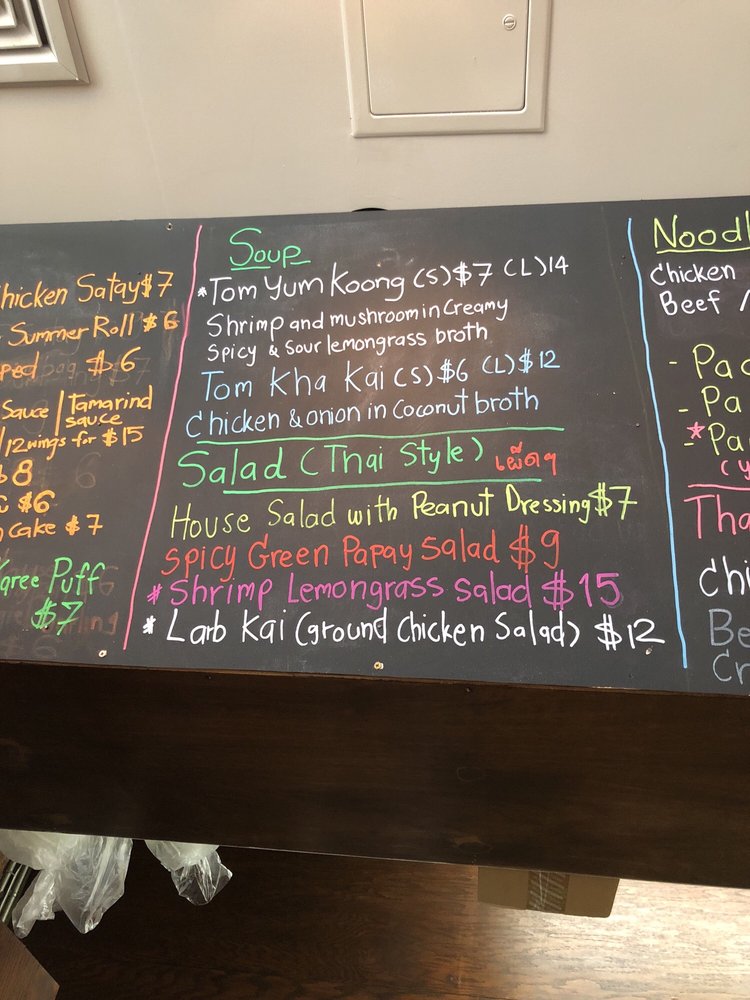 Chicken Satay $7
Summer Roll $6
$6
Sauce / Tamarind
sauce
/12wings for $15
8
$6
Cake $7
Karee Puff
$7
Soup
*Tom Yum Koong (S) $7 (L) 14
Shrimp and mushroom in Creamy
Spicy & Sour lemongrass broth
Tom Kha Kai (S) $6 (L) $12
Chicken & onion in Coconut broth
Salad (Thai Style) เผ็ดๆ
House Salad with Peanut Dressing $7
Spicy Green Papay Salad $9
* Shrimp Lemongrass Salad $15
* Larb Kai (ground chicken Salad) $12
Chicken
Beef /
- Pa
- Pa
*- Pa